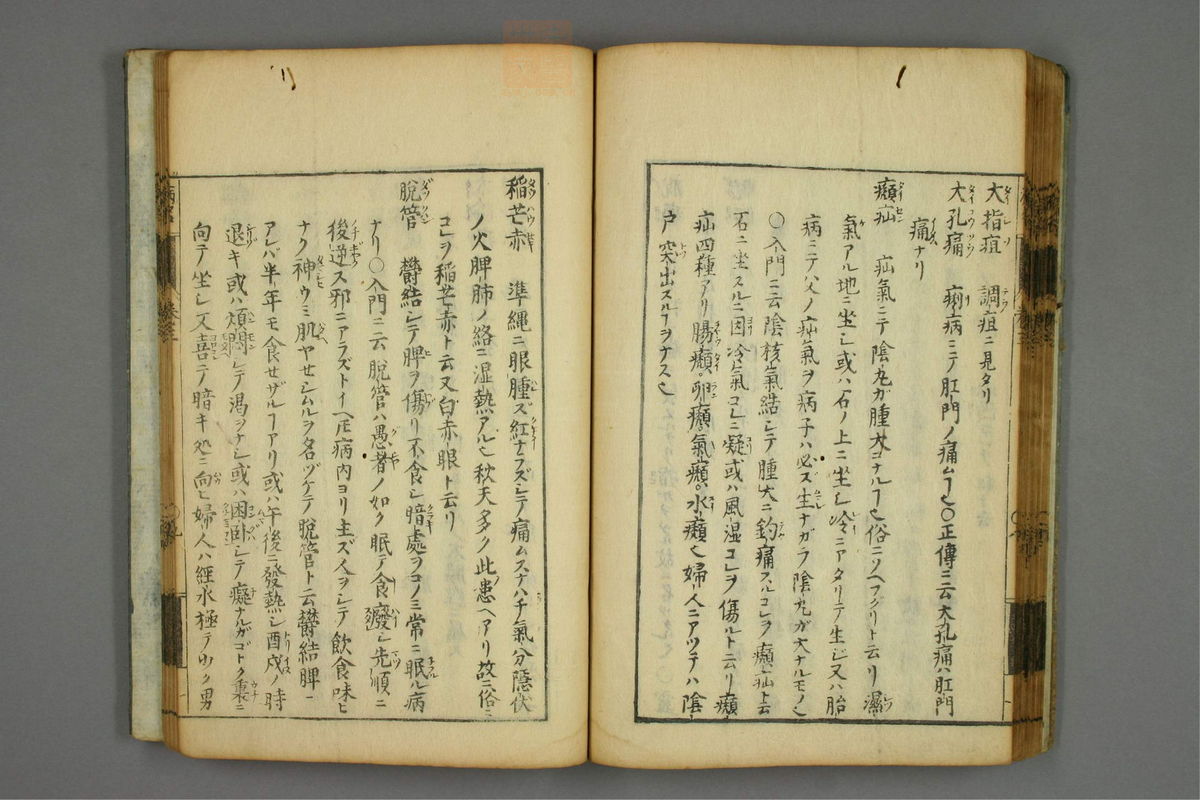 大指疽 調疽ニ見タリ
大孔痛 痢病ニテ肛門ノ痛ムヿ也〇正傳ニ云大孔痛ハ肛門
痛ナリ
㿗疝 疝氣ニテ陰丸ガ腫大ニナルヿ也俗ニソヘフグリト云リ濕
氣アル地ニ坐シ或ハ石ノ上ニ坐シ冷ニアタリテ生ジ又ハ胎
病ニテ父ノ疝氣ヲ病子ハ必ズ生ナガラ陰丸ガ大ナルモノ也
〇入門ニ云陰核氣結シテ腫大ニ釣痛スルコレヲ㿗疝ト云
石ニ坐スルニ因冷氣コレニ凝或ハ風湿コレヲ傷ルト云リ㿗
疝四種アリ腸㿗卵㿗氣㿗水㿗也婦人ニアツテハ陰
戸突出スルヿヲナス也
稲芒赤 準縄ニ眼腫ズ紅ナラズシテ痛ムスナハチ氣分隱伏
ノ火脾肺ノ絡ニ湿熱アル也秋天多ク此患ヘアリ故ニ俗ニ
コレヲ稲芒赤ト云又白赤眼ト云リ
脱管 欝結シテ脾ヲ傷リ不食シ暗處ヲコノミ常ニ眠ル病
ナリ〇入門ニ云脱管ハ愚者ノ如ク眠テ食癈シ先順ニ
後逆ス邪ニアラズトイヘ𪜈病内ヨリ主ズ人ヲシテ飲食味ヒ
ナク神ウミ肌ヤセシムルヲ名ヅケテ脱管ト云欝結脾ニ
アレバ半年モ食セザルヿアリ或ハ午後ニ發熱シ酉戌ノ時
退キ或ハ煩悶シテ渇ヲナシ或ハ困卧シテ癡ナルガゴトク裏ニ
向テ坐シ又喜テ暗キ処ニ向ヒ婦人ハ經水極テ少ク男